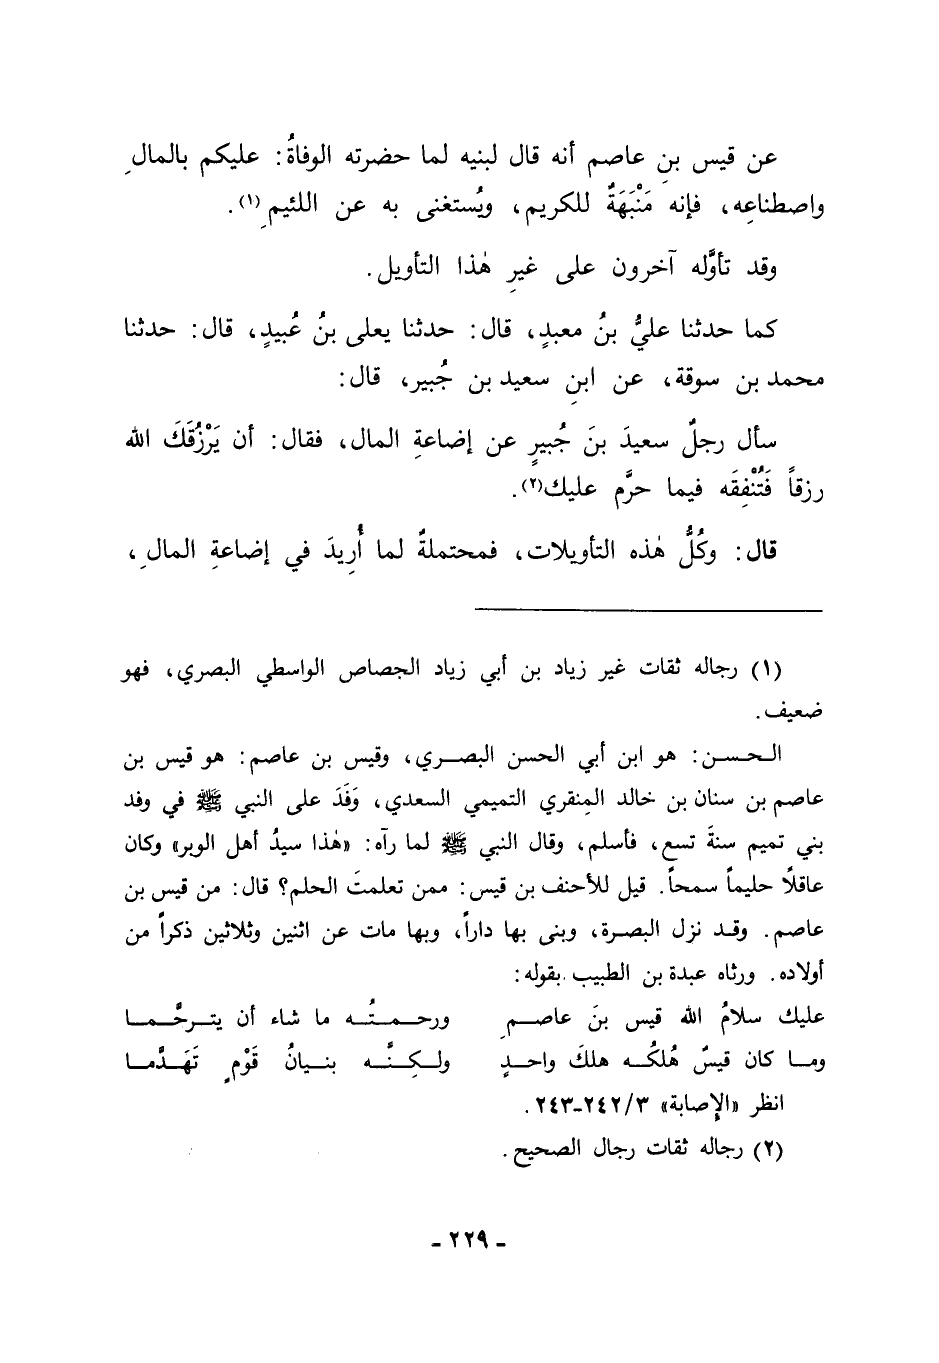 عن قيس بنِ عاصم أنه قال لبنيه لما حضرته الوفاةُ: عليكم بالمالِ
واصطناعِه، فإنه مَنْبَهَةٌ للكريم، ويُستغنى به عن اللئيمِ(١).
وقد تأوَّله آخرون على غيرِ هٰذا التأويل.
كما حدثنا عليُّ بنُ معبدٍ، قال: حدثنا يعلى بنُ عُبيدٍ، قال: حدثنا
محمد بن سوقة، عن ابنِ سعيد بن جُبير، قال:
سأل رجلٌ سعيدَ بنَ جُبيرٍ عن إضاعةِ المال، فقال: أن يَرْزُقَكَ الله
رزقاً فَتُنْفِقَه فيما حرَّم عليك(٢).
قال: وكُلُّ هٰذه التأويلات، فمحتملةٌ لما أُرِيدَ في إضاعةِ المالِ،
(١) رجاله ثقات غير زياد بن أبي زياد الجصاص الواسطي البصري، فهو
ضعيف.
الحسن: هو ابن أبي الحسن البصري، وقيس بن عاصم: هو قيس بن
عاصم بن سنان بن خالد المِنقري التميمي السعدي، وَفَدَ على النبي ﷺ في وفد
بني تميم سنةَ تسع، فأسلم، وقال النبي ﷺ لما رآه: «هٰذا سيدُ أهل الوبر» وكان
عاقلاً حليماً سمحاً. قيل للأحنف بن قيس: ممن تعلمتَ الحلم؟ قال: من قيس بن
عاصم. وقد نزل البصرة، وبنى بها داراً، وبها مات عن اثنين وثلاثين ذكراً من
أولاده. ورثاه عبدة بن الطبيب بقوله:
عليك سلامُ الله قيس بنَ عاصمِ ورحمتُه ما شاء أن يترحَّما
وما كان قيسٌ هُلكُه هلكَ واحدٍ ولكِنَّه بنيانُ قَوْمٍ تَهَدَّما
انظر «الإصابة» ٢٤٢/٣-٢٤٣.
(٢) رجاله ثقات رجال الصحيح.
- ٢٢٩ -